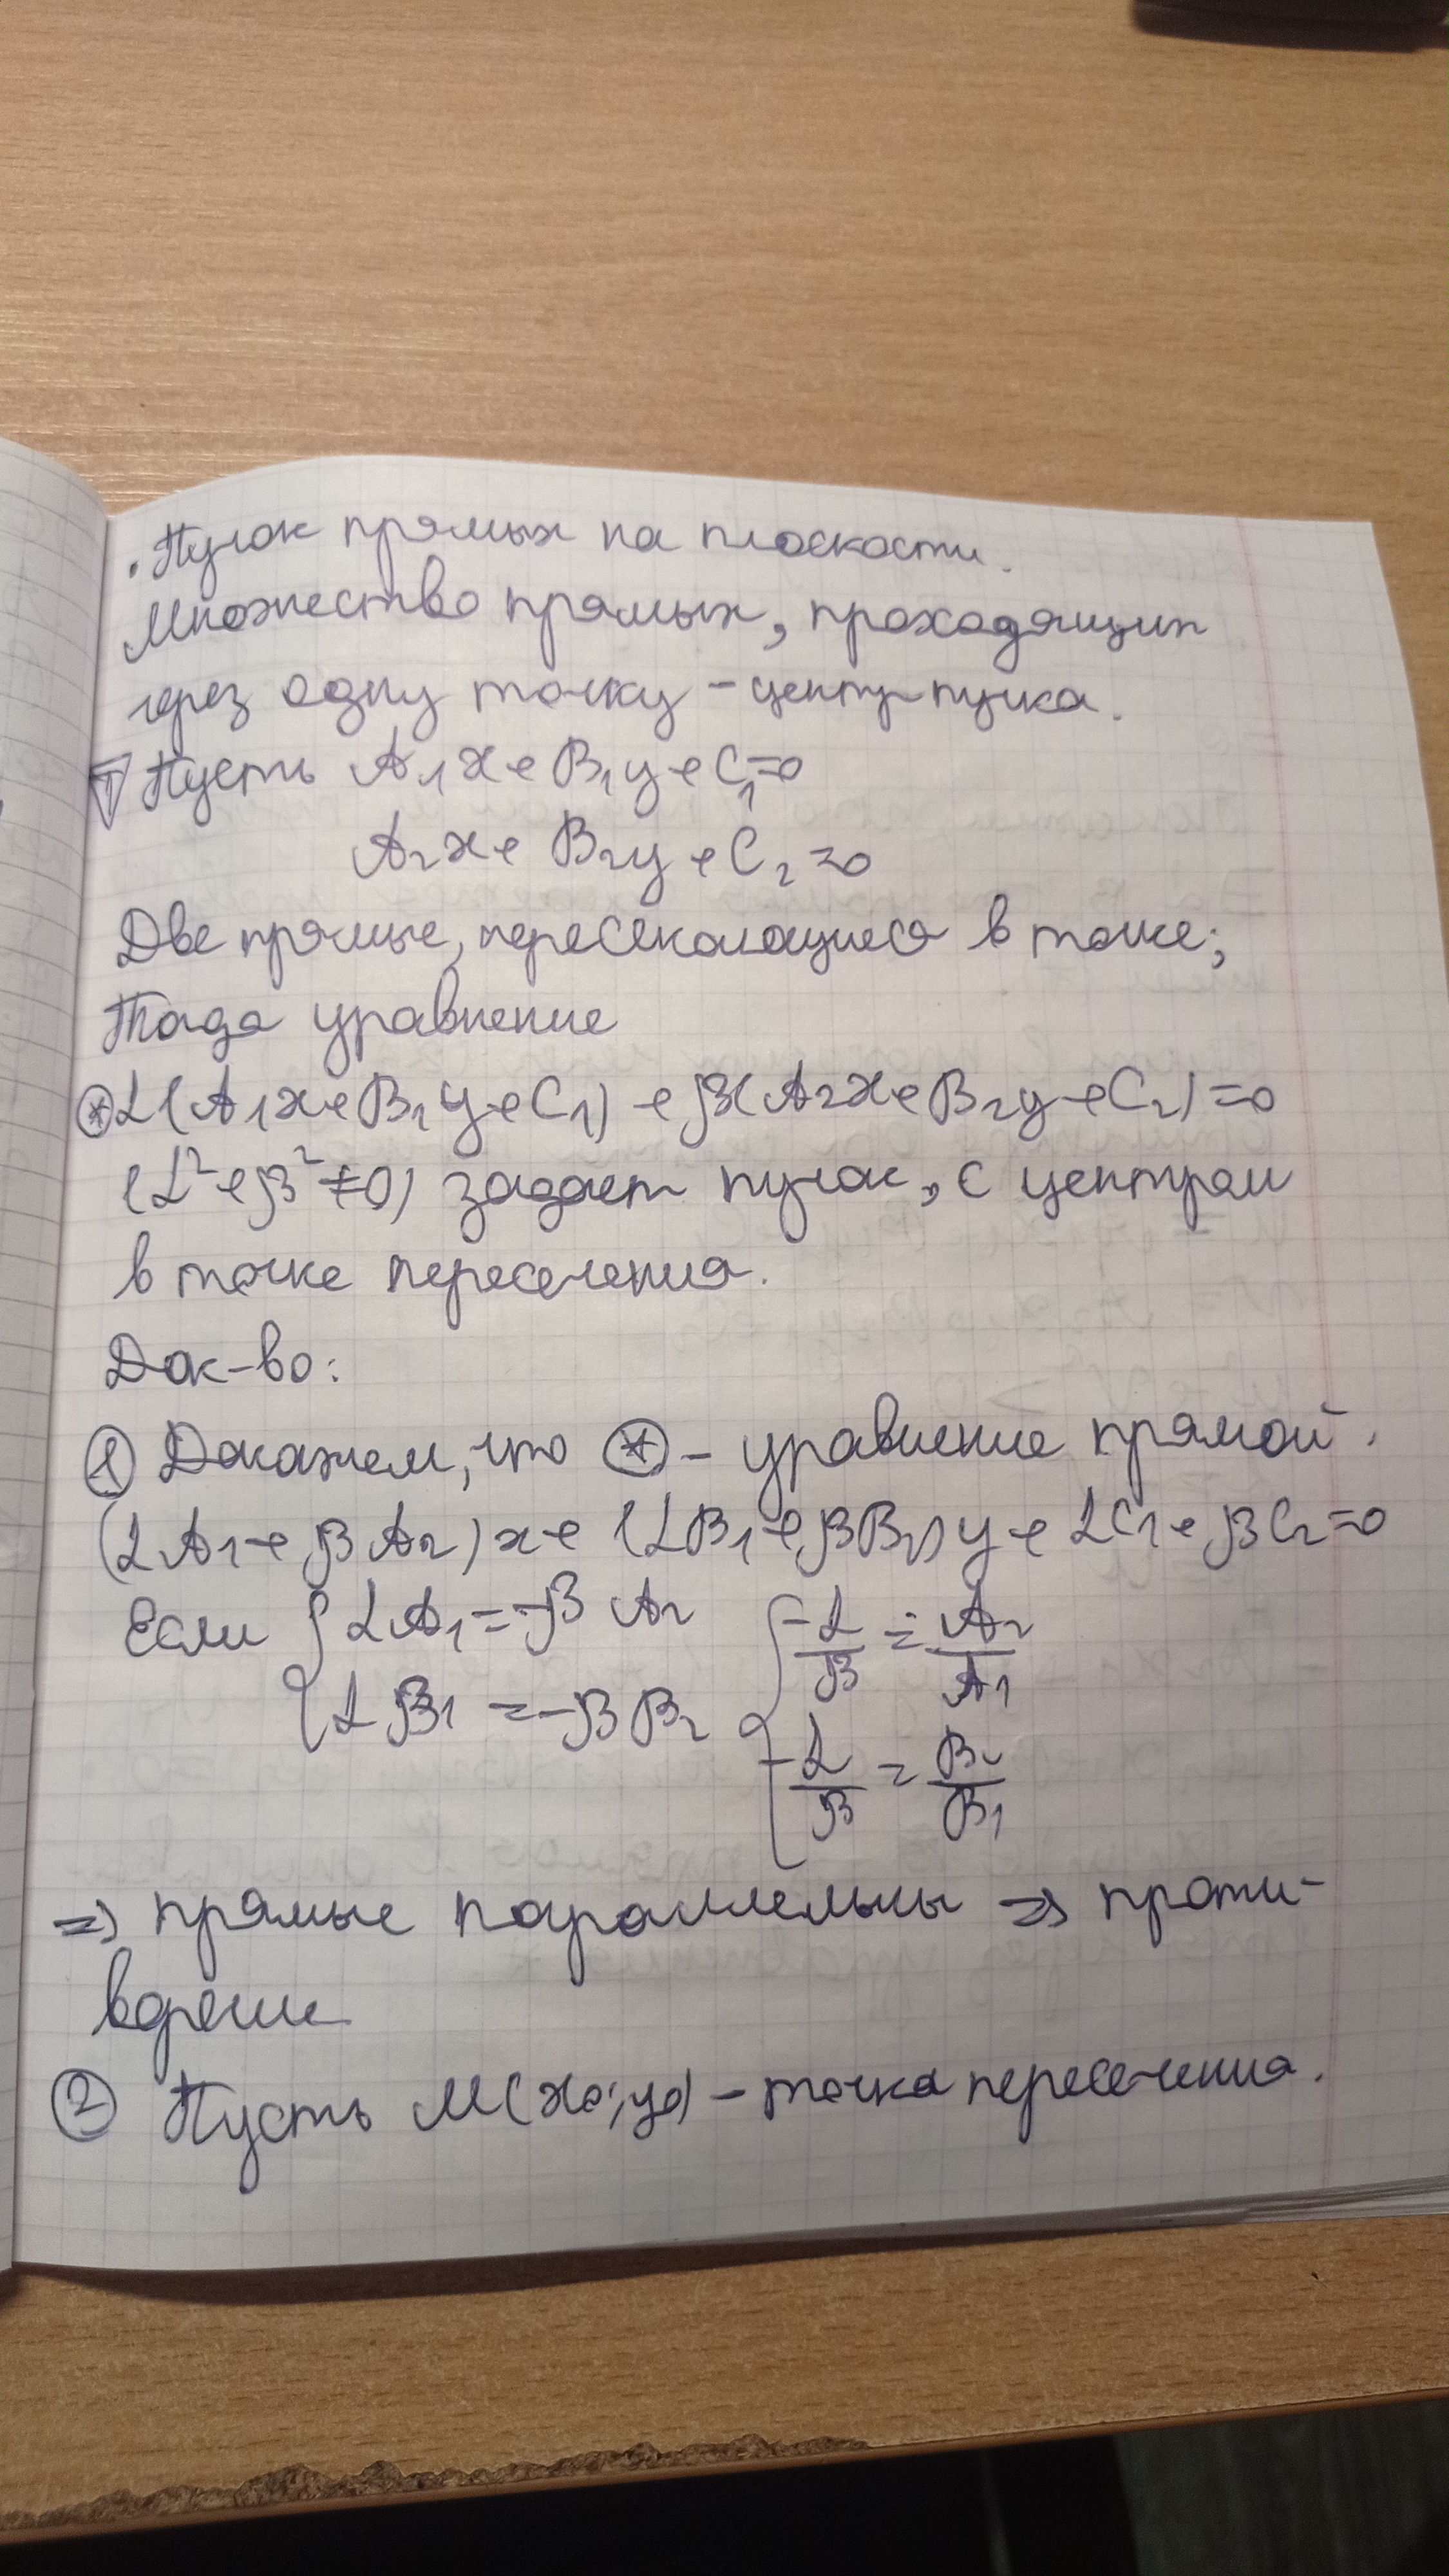 . Пучок прямых на плоскости.
Множество прямых, проходящих
через одну точку - центр пучка.
Т Пусть A₁x + B₁y + C₁ = 0
A₂x + B₂y + C₂ = 0
Две прямые, пересекающиеся в точке;
Тогда уравнение
(*) α(A₁x + B₁y + C₁) + β(A₂x + B₂y + C₂) = 0
(α² + β² ≠ 0) задает пучок, с центром
в точке пересечения.
Док-во:
① Докажем, что (*) - уравнение прямой.
(αA₁ + βA₂)x + (αB₁ + βB₂)y + αC₁ + βC₂ = 0
Если { αA₁ = -βA₂ { -α/β = A₂/A₁
αB₁ = -βB₂ -α/β = B₂/B₁
=> прямые параллельны => проти-
вореч
② Пусть M(x₀; y₀) - точка пересечения.